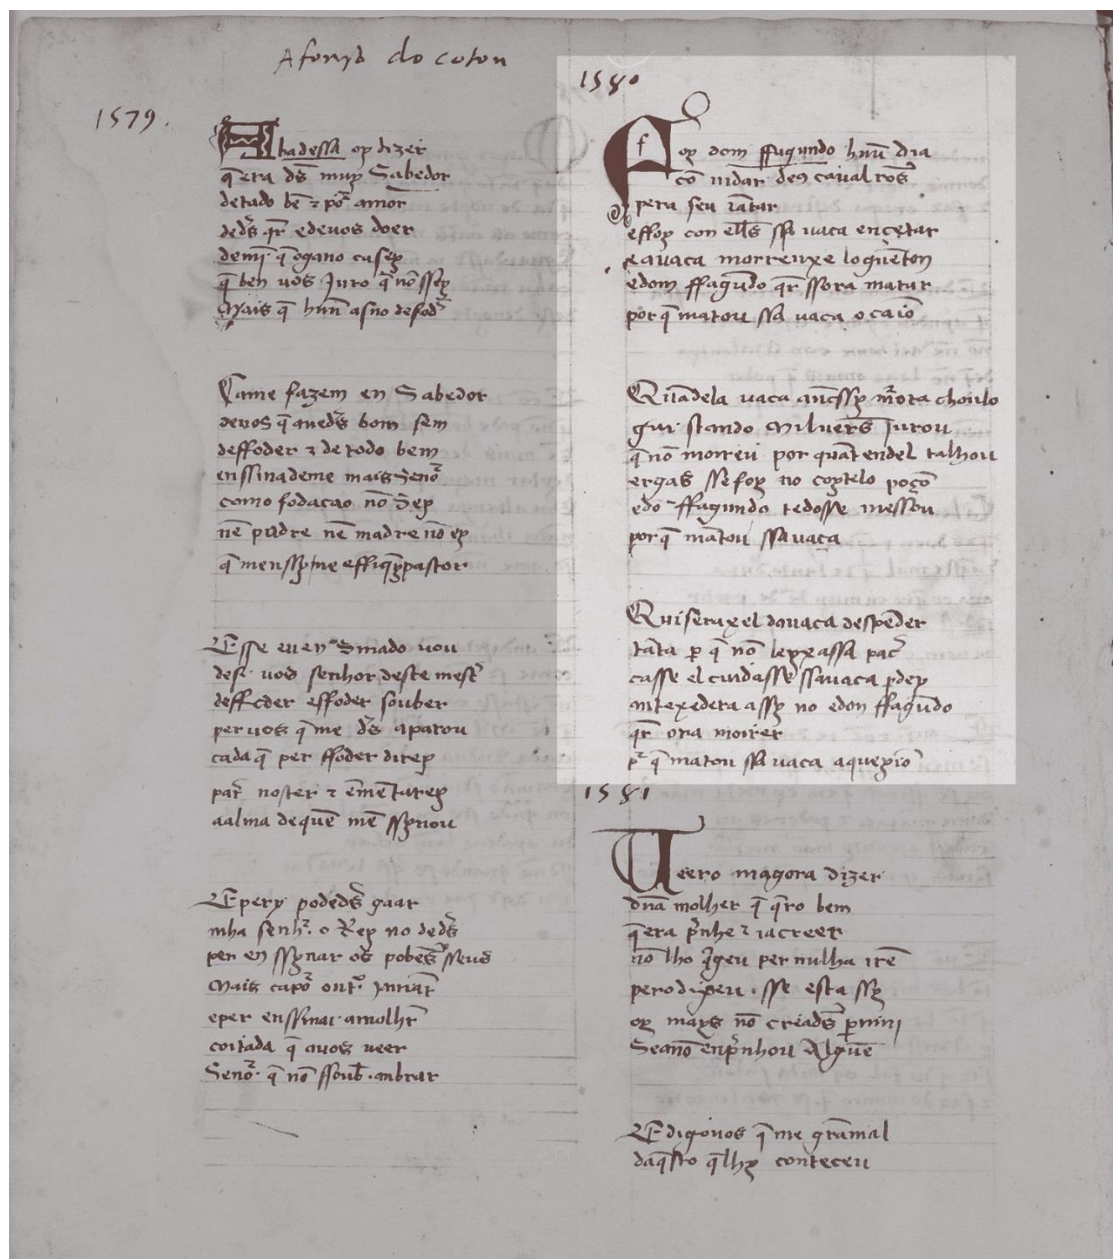 Afonso do coton
1579.
Abadessa oy dizer
q̄ era ds̄ muy Sabedor
detado bē ⁊ por amor
deds̄ qr̄ edevos doer
demī q̄ ogano casey
q̄ ben vos Juro q̄ nō ssey
Mais q̄ hūu asno defod̄
Came fazem en Sabedor
devos q̄ aveds̄ bom sem
deffoder ⁊ de todo bem
enssinademe mais Senōr
como fodacao nō Sey
nē padre nē madre nō ey
q̄ menssyne effiq̄y pastor
Esse eu en sinado vou
desy vos senhor deste mest̄
deffoder effoder souber
per vos q̄ me ds̄ aparou
cada q̄ per ffoder direy
pat̄ noster ⁊ ēmentarey
aalma dequē mē ssynou
E pery podeds̄ gaar
mha senhr̄ o Rey no deds̄
per en ssynar os pobes̄ sseus
Mais
eper enssinar amolhr̄
coitada q̄ avos veer
Senōr q̄ nō ssoub̄ anbrar
1580
Foy dom ffagundo hūu dia
cō uidar
pera seu iātar
effoy con ells̄ ssa vaca encetar
e avaca morreuxe loguēton
edom ffagūdo qr̄ ssora matar
por q̄ matou ssa vaca o caiō
Quādela vaca
gui stando Mil vers̄ Jurou
q̄ nō morreu por quāt endel talhou
ergas sse foy no coytelo poçō
edō ffagundo tedosse messou
porq̄ matou ssa vaca
Quiseraxel da vaca despēder
tāta per q̄ nō leyxassa pac̄
casse el cuidasse ssa vaca pdey
antexedera assy no edon ffagūdo
qr̄ ora morrer
pr̄ q̄ matou ssa vaca aqueyio
1581
Veero magora dizer
dūa molher q̄ q̄ro bem
q̄ era pr̄nhe ⁊ ia creer
nō lho q̄geu per nulha rrē
pero dixeu sse esta ssy
oy mays nō creads̄ per mī
Seanō enpr̄nhou Alguē
E digovos q̄ me grāmal
daq̄sto q̄lhy conteceu